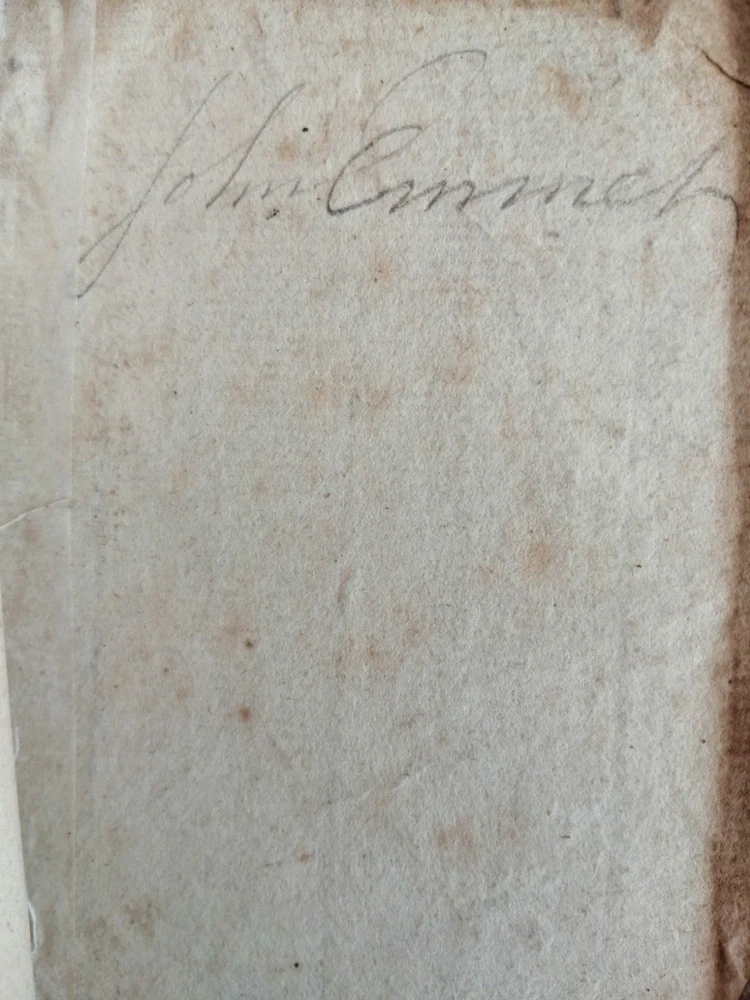 John Emmet